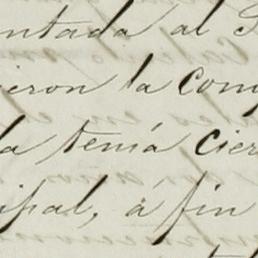 ntada al
ieron la com
la tenía cier
ipal, á fin